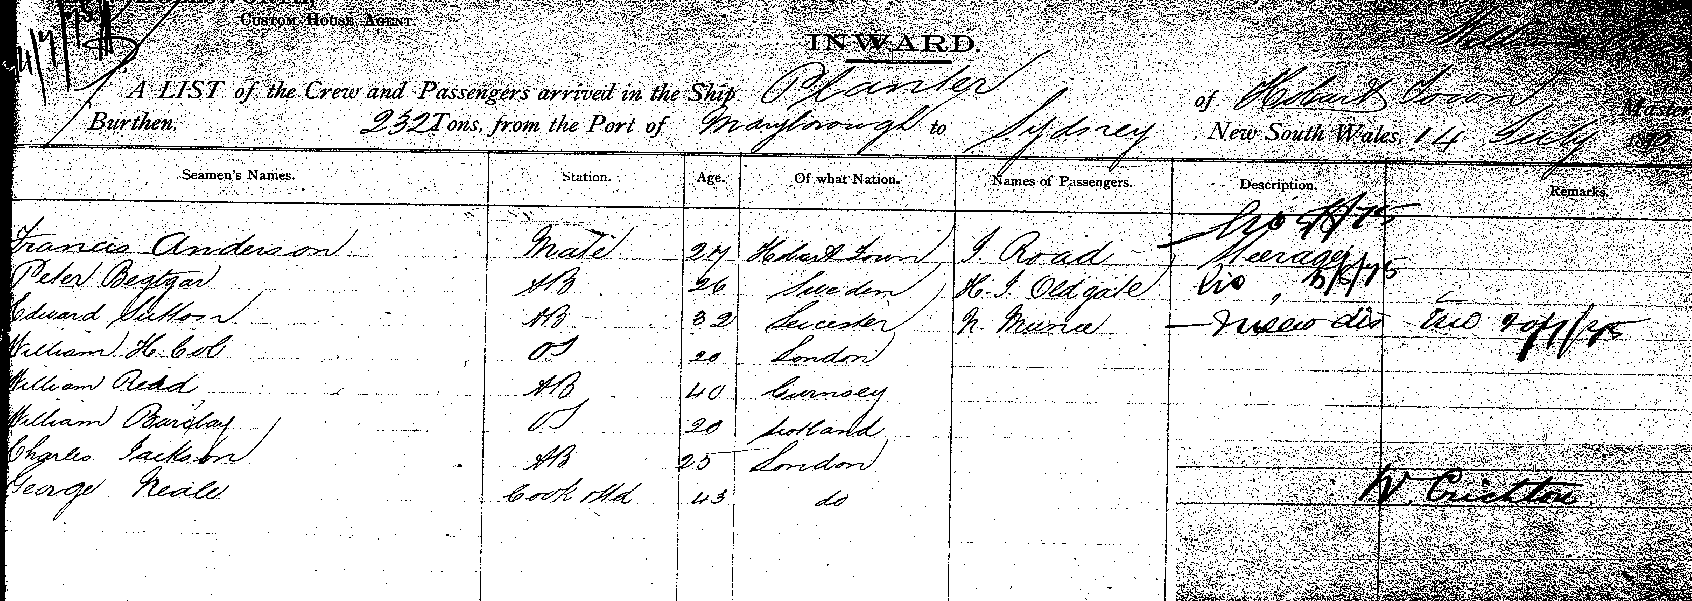 CUSTOM HOUSE AGENT.
INWARD.
A LIST of the Crew and Passengers arrived in the Ship Planter of Hobart Town Master
Burthen, 232 Tons, from the Port of Maryborough to Sydney New South Wales, 14 July
Seamen's Names. Station. Age. Of what Nation. Names of Passengers. Description. Remarks.
Francis Anderson Mate 27 Hobart Town J. Road
Peter AB 26 Sweden H. J. Oldgate
Edward Sutton AB 32 Leicester
William H. Col OS 20 London
William Redd AB 40 Gurnsey
William Barclay OS 20 Scotland
Charles Jackson AB 25 London
George Neale Cook & Std 43 do
W. Crichton